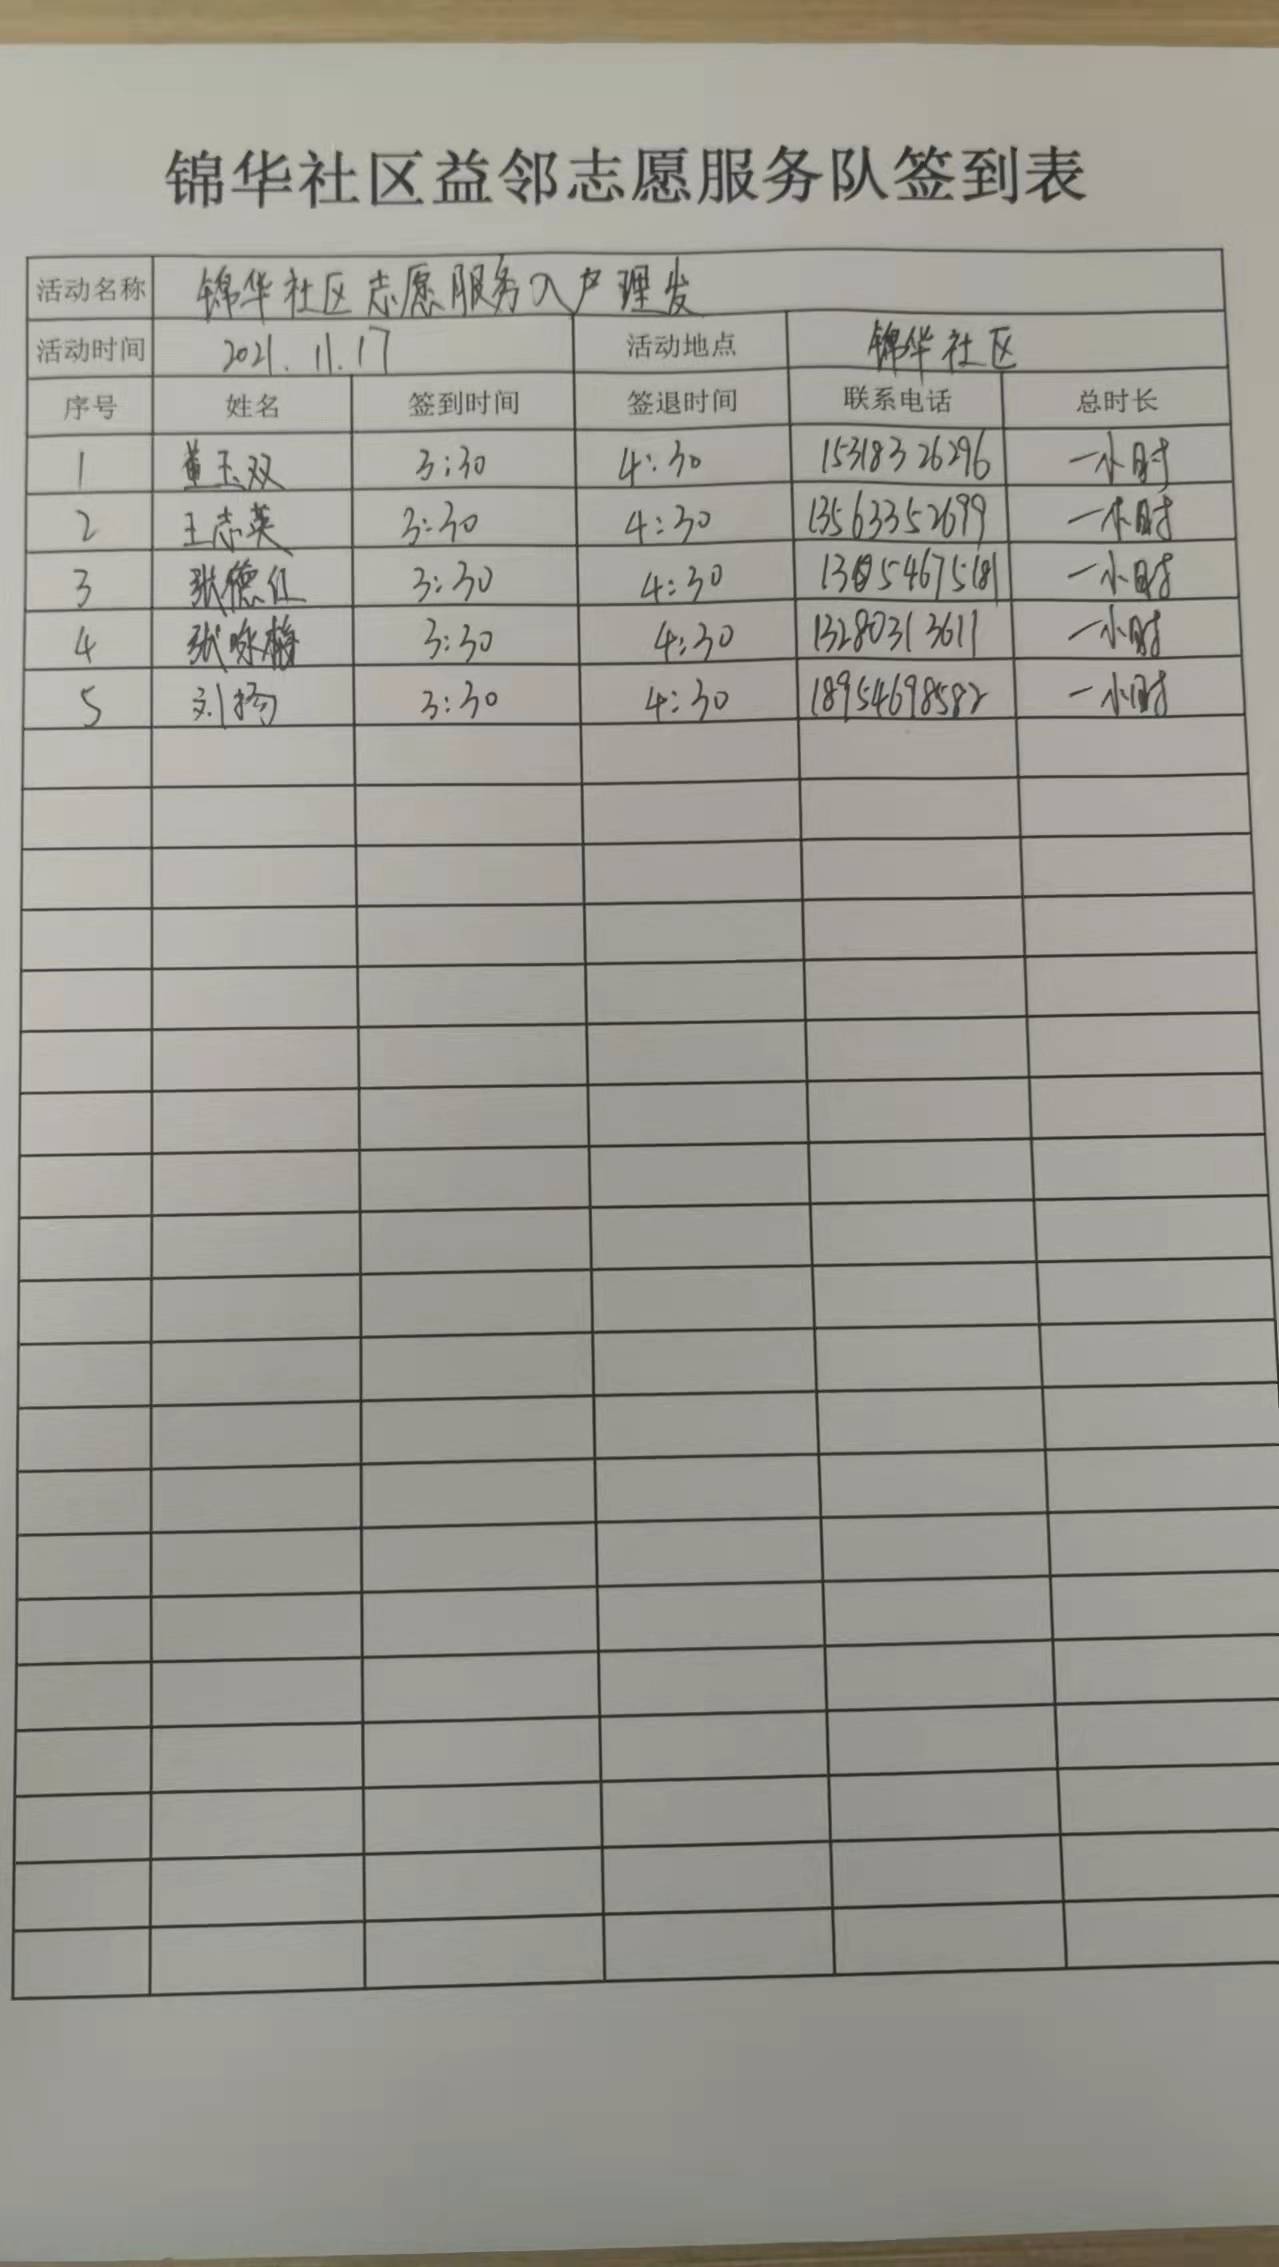 锦华社区益邻志愿服务队签到表
活动名称 锦华社区志愿服务入户理发
活动时间 2021.11.17 活动地点 锦华社区
序号 姓名 签到时间 签退时间 联系电话 总时长
1 董玉双 3:30 4:30 15318326296 一小时
2 王志英 3:30 4:30 13563352699 一小时
3 张德仁 3:30 4:30 一小时
4 张咏梅 3:30 4:30 13280313611 一小时
5 刘扬 3:30 4:30 18954698582 一小时